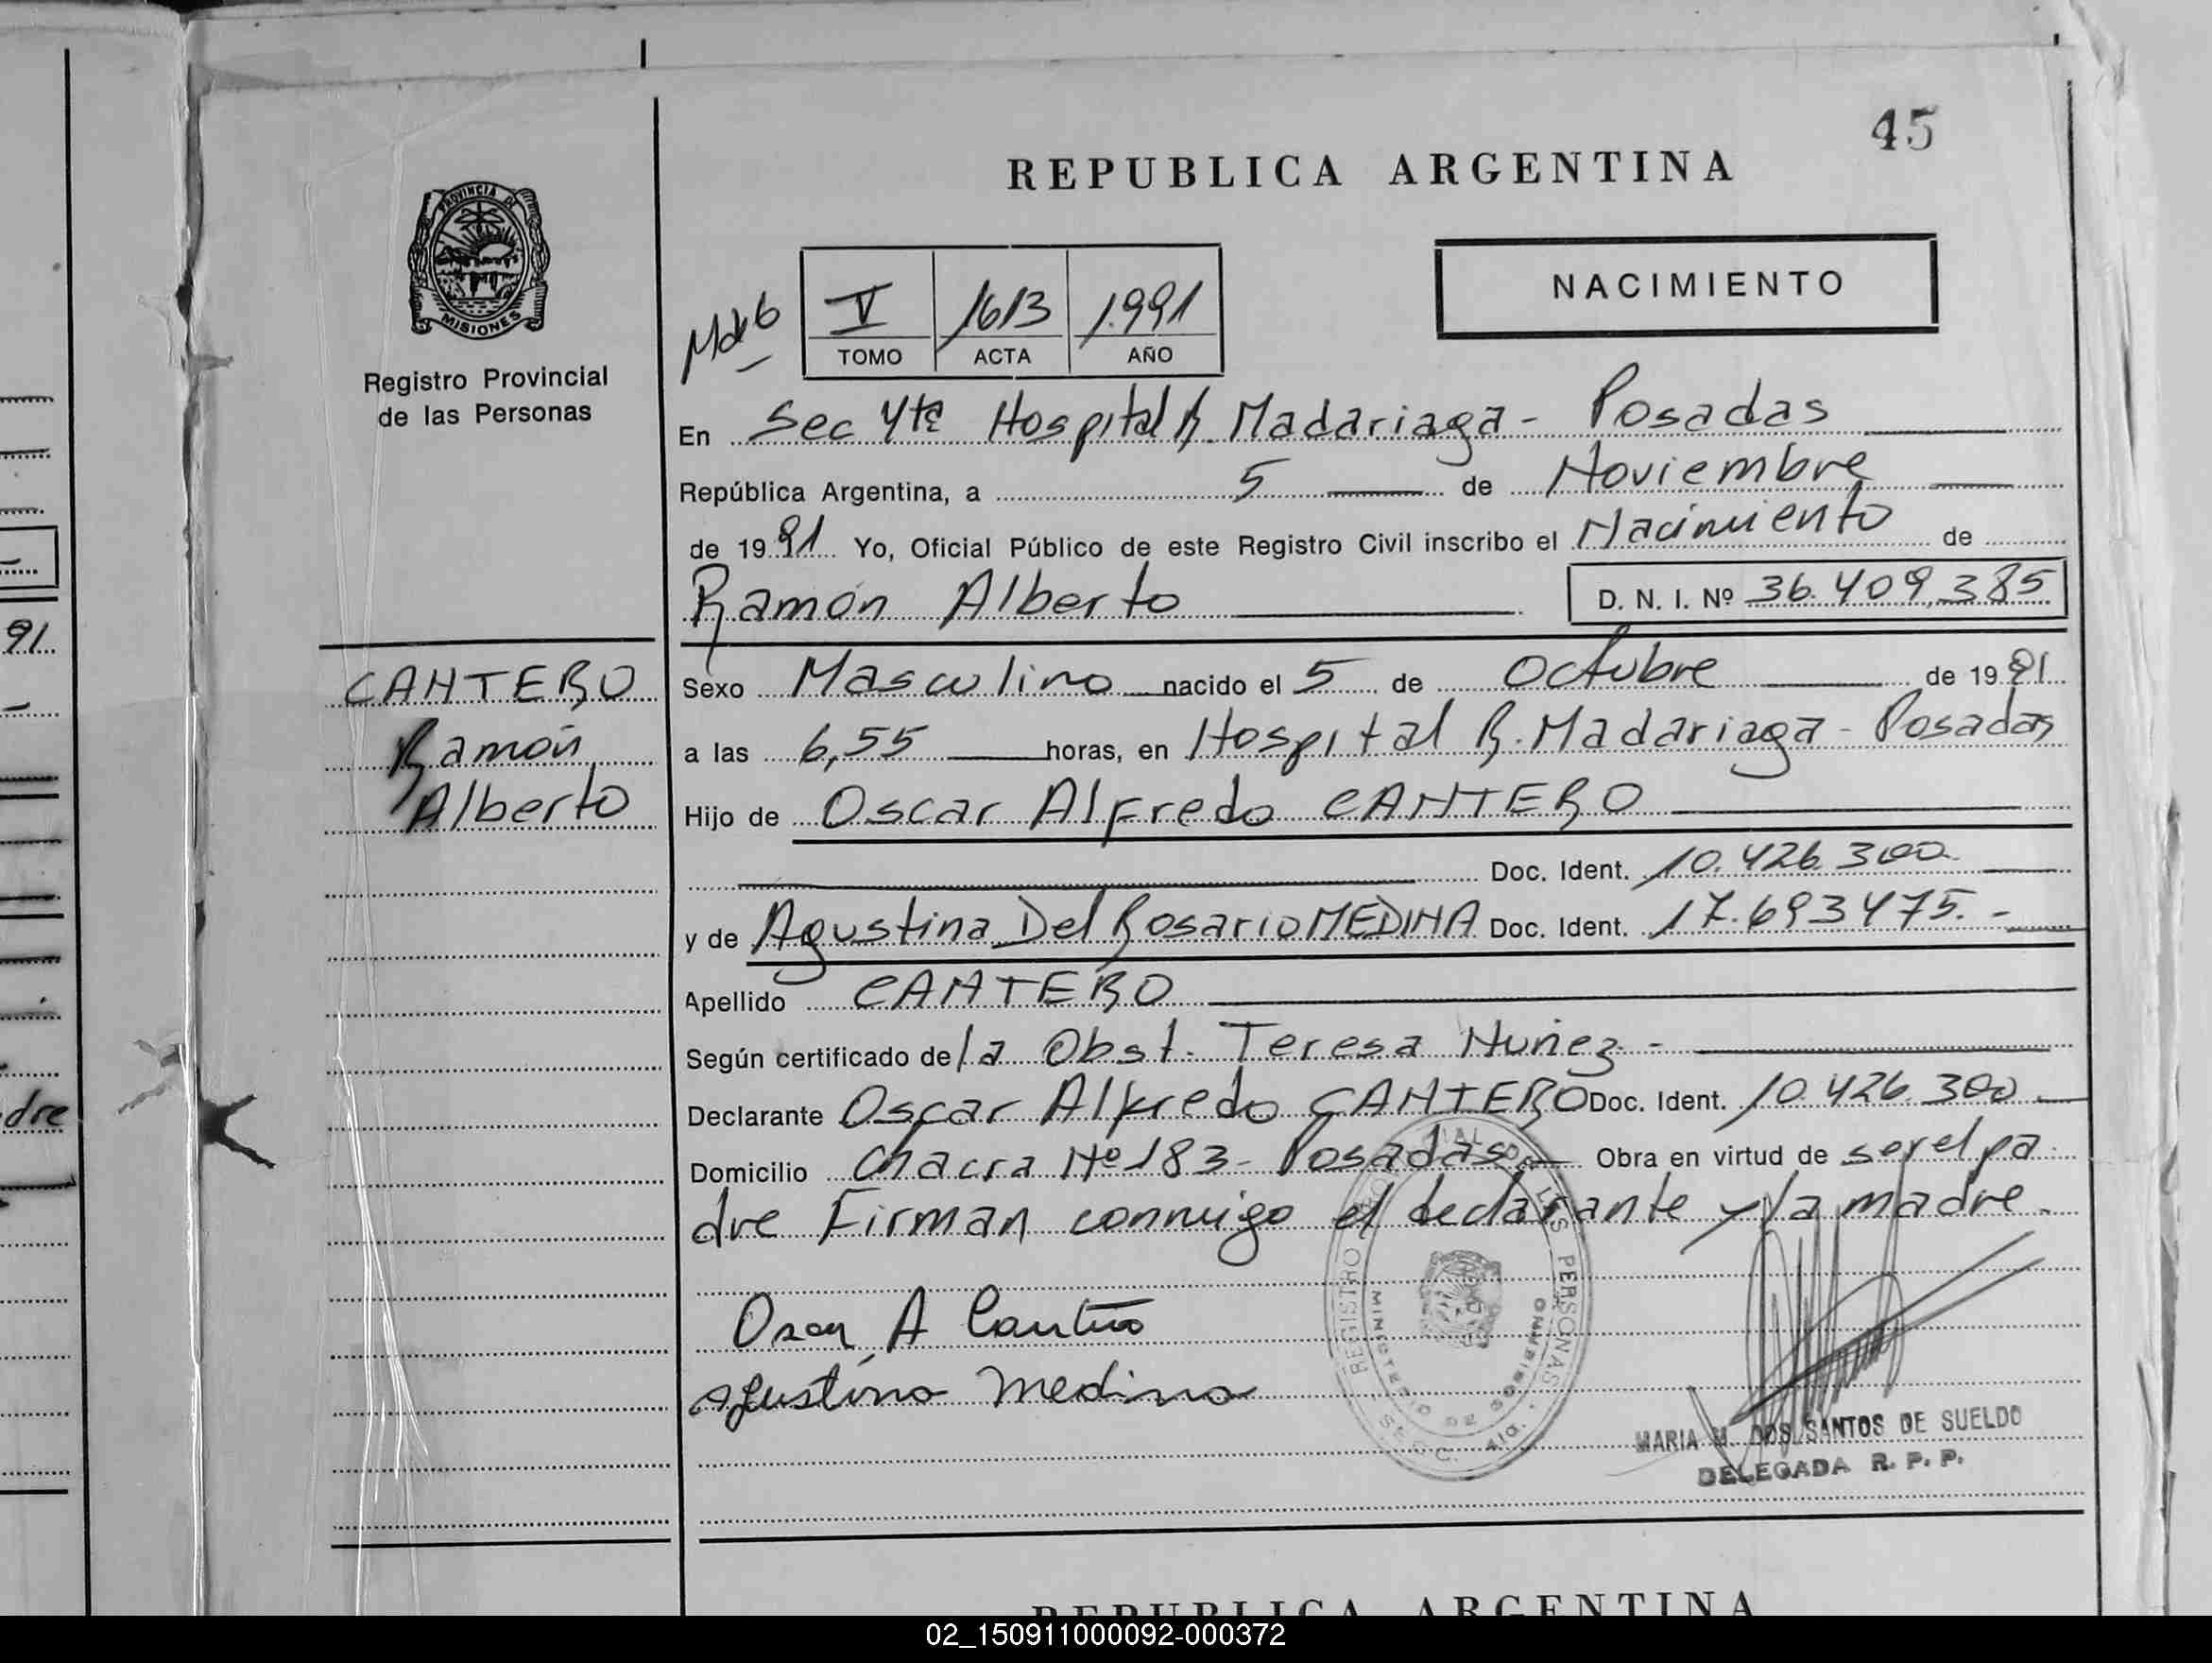 45
REPUBLICA ARGENTINA
PROVINCIA DE
MISIONES
Registro Provincial
de las Personas
NACIMIENTO
V 1613 1.991
TOMO ACTA AÑO
En Sec 4ta Hospital R. Madariaga - Posadas
República Argentina, a 5 de Noviembre
de 1991 Yo, Oficial Público de este Registro Civil inscribo el Nacimiento de
Ramón Alberto D. N. I. Nº 36.409.385
CANTERO
Ramón
Alberto
Sexo Masculino nacido el 5 de Octubre de 1991
a las 6,55 horas, en Hospital R. Madariaga - Posadas
Hijo de Oscar Alfredo CANTERO
Doc. Ident. 10.426.300
y de Agustina Del Rosario MEDINA Doc. Ident. 17.693475.-
Apellido CANTERO
Según certificado de la Obst. Teresa Nuñez -
Declarante Oscar Alfredo CANTERO Doc. Ident. 10.426.300
Domicilio Chacra Nº 183 - Posadas Obra en virtud de ser el pa
dre Firman conmigo el declarante y la madre.
Oscar A Cantero
Agustina Medina
REGISTRO PROVINCIAL DE LAS PERSONAS
MINISTERIO DE GOBIERNO
SECC. 4ta.
MARIA M. DOS SANTOS DE SUELDO
DELEGADA R. P. P.
REPUBLICA ARGENTINA
91
dre
02_150911000092-000372